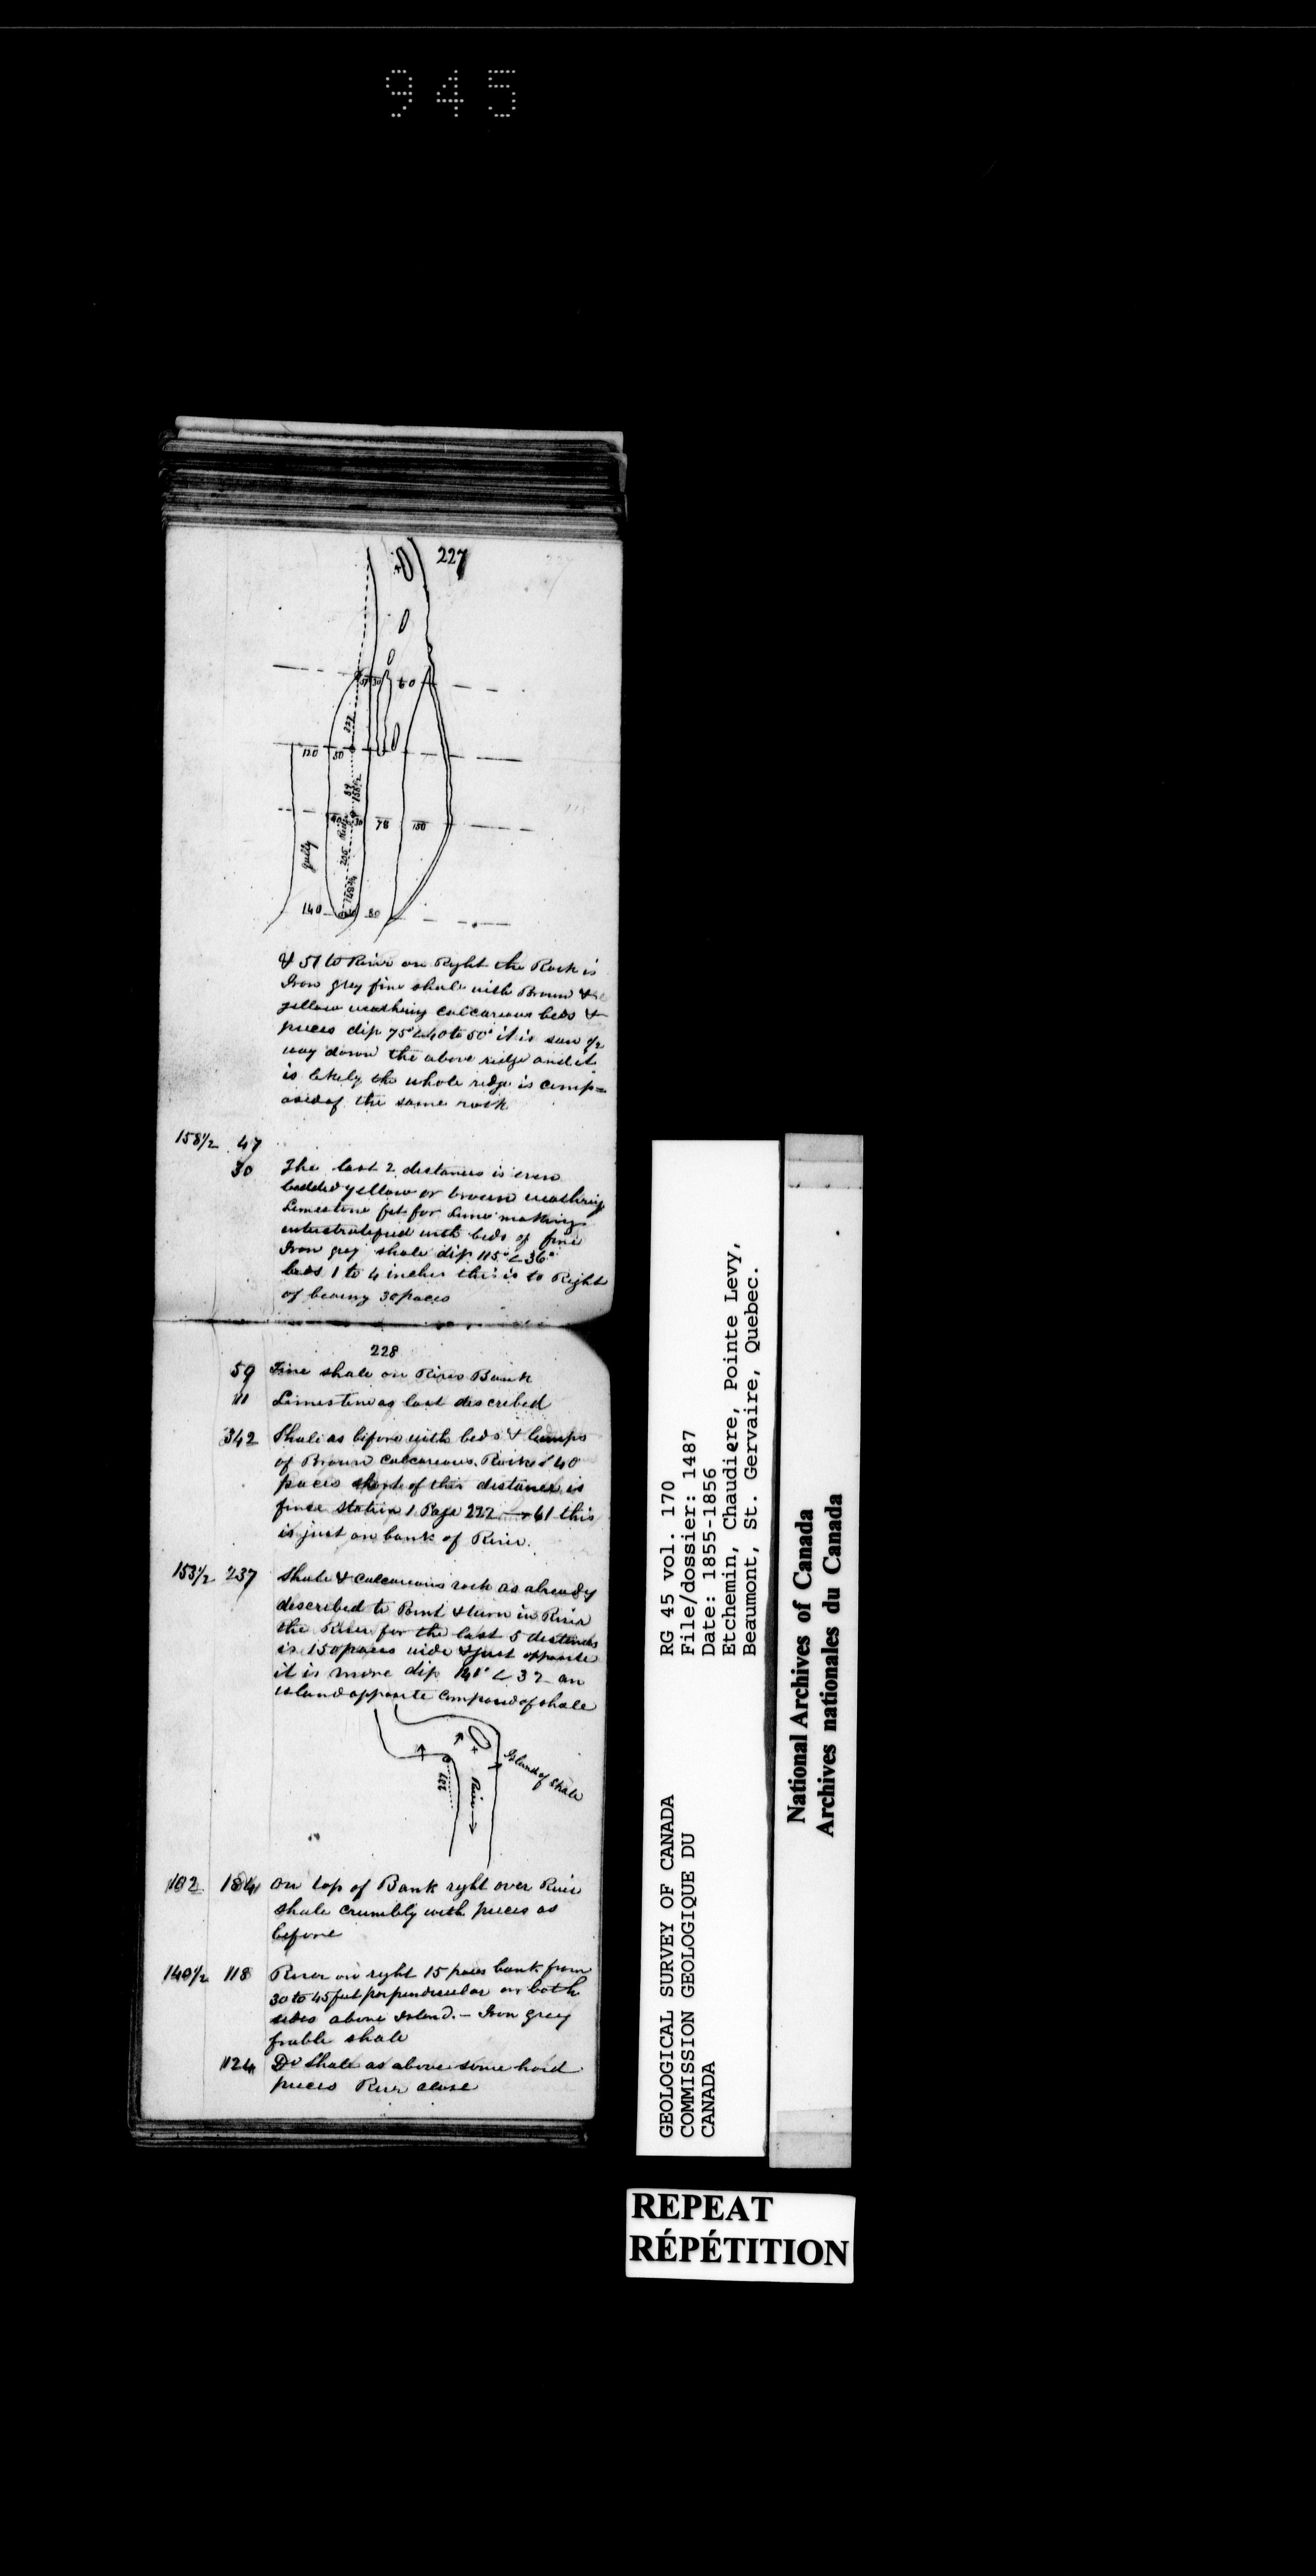 945
227
57 30 60
237
120 50
89
158 1/2
40 30 78 150
Ridge
206
gully
140 80
& 57 to River on Right the Rock is
Iron grey fine shale with Brown &
yellow weathring calcareous beds &
pieces dip 75° < 40 to 50° it is seen 1/2
way down the above ridge and it
is likely the whole ridge is comp=
osed of the same rock
158 1/2 47
30 The last 2 distances is even
bedded yellow or brown weathring
Limestone fit for Lime making
interstratified with beds of fine
Iron grey shale dip 115° < 36°
beds 1 to 4 inches this is to Right
of bearing 30 paces
228
59 Fine shale on Rivers Bank
111 Limestone as last described
342 Shale as before with beds & lumps
of Brown calcareous Rock & 40
paces short of this distance is
finse Station 1 Page 222 → 61 this
is just on bank of River.
153 1/2 237 Shale & calcareous rock as already
described to Point & turn in River
the River for the last 5 distances
is 150 paces wide & just opposite
it is more dip 141° < 32 an
island opposite composed of shale
237
River
Island of Shale
102 184 On top of Bank right over River
shale crumbly with pieces as
before
140 1/2 118 River on right 15 paces bank from
30 to 45 feet perpendicular on both
sides above Island. – Iron grey
friable shale
124 Do Shale as above some hard
pieces River close
GEOLOGICAL SURVEY OF CANADA
COMMISSION GEOLOGIQUE DU
CANADA
RG 45 vol. 170
File/dossier: 1487
Date: 1855-1856
Etchemin, Chaudiere, Pointe Levy,
Beaumont, St. Gervaire, Quebec.
National Archives of Canada
Archives nationales du Canada
REPEAT
RÉPÉTITION